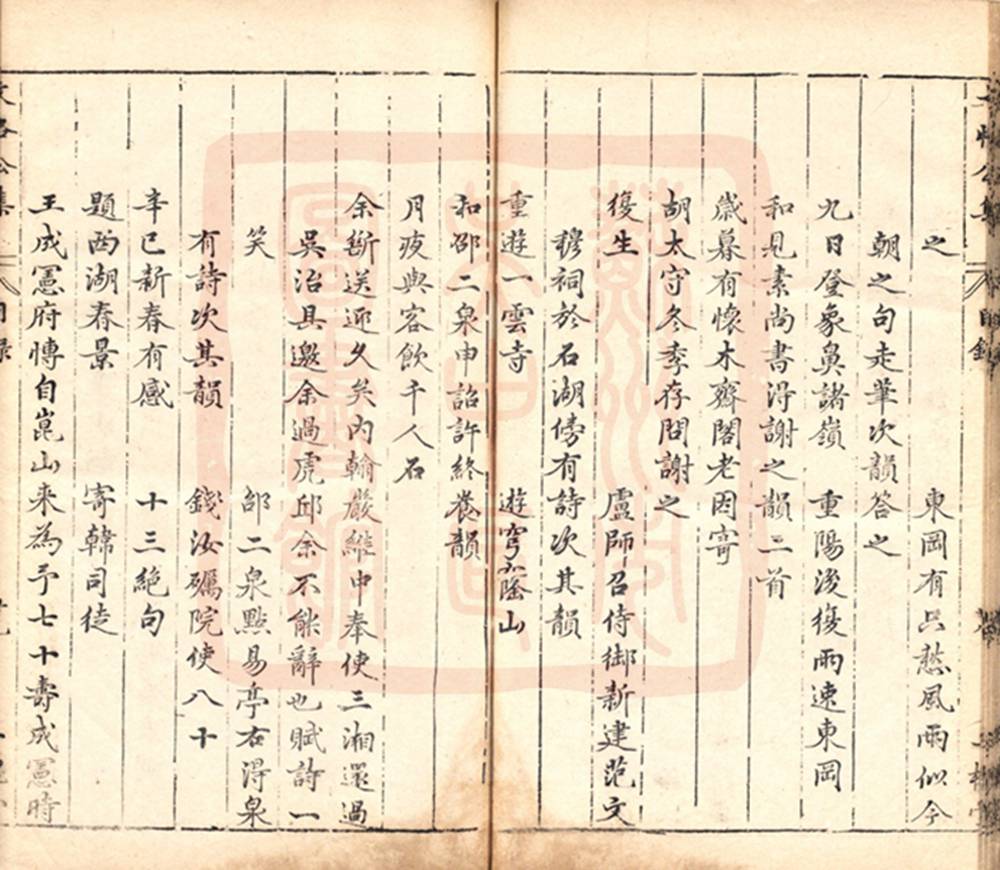 之 東岡有只愁風雨似今
朝之句走筆次韻答之
九日登象鼻諸嶺 重陽後復雨速東岡
和見素尚書淂謝之韻二首
歲暮有懷木齋閣老因寄
胡太守冬季存問謝之
復生 盧師召侍御新建范文
穆祠於石湖傍有詩次其韻
重遊一雲寺 遊穹窿山
和邵二泉申詔許終養韻
月夜與客飲千人石
余斷送迎久矣內翰嚴維中奉使三湘還過
吳治具邀余過虎邱余不能辭也賦詩一
笑 邵二泉點易亭右淂泉
有詩次其韻 錢汝礪院使八十
辛巳新春有感 十三絕句
題西湖春景 寄韓司徒
王成憲府愽自崑山来為予七十壽成憲時